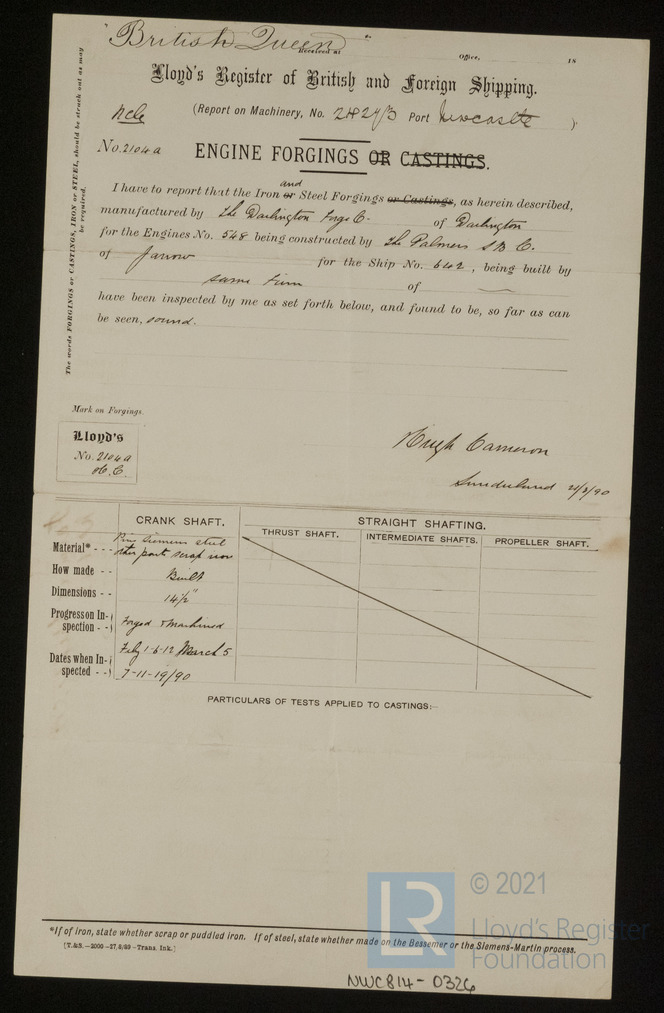 "British Queen"
Received at Office, 18
Lloyd's Register of British and Foreign Shipping.
Ncle (Report on Machinery, No. Port Newcastle )
No. 2104a ENGINE FORGINGS OR CASTINGS.
and
I have to report that the Iron or Steel Forgings or Castings, as herein described,
manufactured by The Darlington Forge C. of Darlington
for the Engines No. 548 being constructed by The Palmers S B C.
of Jarrow for the Ship No. 642, being built by
same Firm of
have been inspected by me as set forth below, and found to be, so far as can
be seen, sound.
The words FORGINGS or CASTINGS, IRON or STEEL, should be struck out as may
be required.
Mark on Forgings.
Lloyd's
No. 2104a
H.C.
Hugh Cameron
Sunderland 21/3/90
CRANK SHAFT. STRAIGHT SHAFTING.
THRUST SHAFT. INTERMEDIATE SHAFTS. PROPELLER SHAFT.
Material* - - - Pins Siemens steel
other parts scrap iron
How made - - Built
Dimensions - - 14½"
Progress on In-
spection - - Forged & Machined
Dates when In-
spected - - Feby 1-6-12 March 5
7-11-19/90
PARTICULARS OF TESTS APPLIED TO CASTINGS:—
*If of iron, state whether scrap or puddled iron. If of steel, state whether made on the Bessemer or the Siemens-Martin process.
[T.&S.—2000—27/3/89—Trans. Ink.]
LR
© 2021
Lloyd's Register
Foundation
NWC814-0326